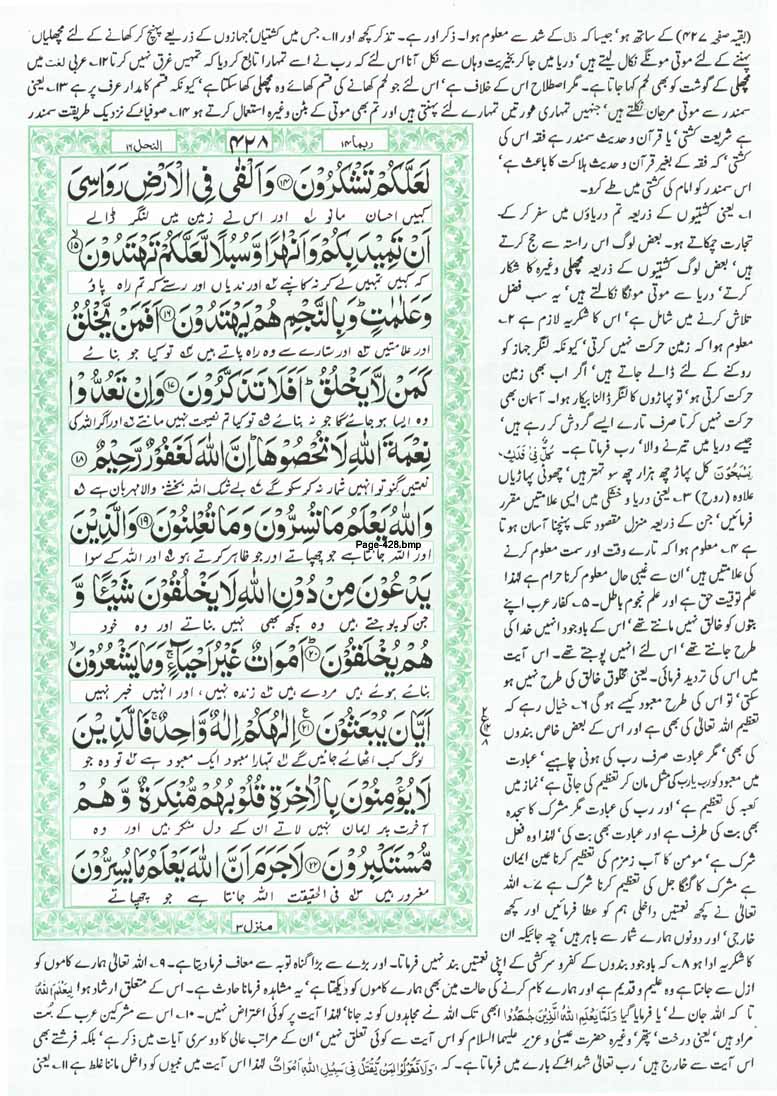 (بقیہ صفحہ ۴۲۷) کے ساتھ ہو، جیسا کہ ذال کے شد سے معلوم ہوا۔ ذکر اور ہے۔ تذکر کچھ اور ۱۱۔ جس میں کشتیاں، جہازوں کے ذریعے پہنچ کر کھانے کے لئے مچھلیاں
پہننے کے لئے موتی مونگے نکال لیتے ہیں، دریا میں جا کر بخیریت وہاں سے نکل آنا اس لئے کہ رب نے اسے تمہارا تابع کر دیا کہ تمہیں غرق نہیں کرتا ۱۲۔ عربی لغت میں
مچھلی کے گوشت کو بھی لحم کہا جاتا ہے۔ مگر اصطلاح اس کے خلاف ہے، اس لئے جو لحم کھانے کی قسم کھائے وہ مچھلی کھا سکتا ہے، کیونکہ قسم کا مدار عرف پر ہے ۱۳۔ یعنی
سمندر سے موتی مرجان نکلتے ہیں، جنہیں تمہاری عورتیں تمہارے لئے پہنتی ہیں اور تم بھی موتی کے بٹن وغیرہ استعمال کرتے ہو ۱۴۔ صوفیاء کے نزدیک طریقت سمندر
ہے شریعت کشتی، یا قرآن و حدیث سمندر ہے فقہ اس کی
کشتی، کہ فقہ کے بغیر قرآن و حدیث ہلاکت کا باعث ہے،
اس سمندر کو امام کی کشتی میں طے کرو۔
۱۔ یعنی کشتیوں کے ذریعہ تم دریاؤں میں سفر کر کے
تجارت چمکاتے ہو۔ بعض لوگ اس راستہ سے حج کرتے
ہیں، بعض لوگ کشتیوں کے ذریعہ مچھلی وغیرہ کا شکار
کرتے، دریا سے موتی مونگا نکالتے ہیں، یہ سب فضل
تلاش کرنے میں شامل ہے، اس کا شکریہ لازم ہے ۲۔
معلوم ہوا کہ زمین حرکت نہیں کرتی، کیونکہ لنگر جہاز کو
روکنے کے لئے ڈالے جاتے ہیں، اگر اب بھی زمین
حرکت کرتی ہو، تو پہاڑوں کا لنگر ڈالنا بیکار ہوا۔ آسمان بھی
حرکت نہیں کرتا صرف تارے ایسے گردش کر رہے ہیں،
جیسے دریا میں تیرنے والا، رب فرماتا ہے۔ کُلٌّ فِیْ فَلَکٍ
یَّسْبَحُوْنَ کل پہاڑ چھ ہزار چھ سو تہتر ہیں، چھوٹی پہاڑیاں
علاوہ (روح) ۳۔ یعنی دریا و خشکی میں ایسی علامتیں مقرر
فرمائیں، جن کے ذریعہ منزل مقصود تک پہنچنا آسان ہوتا
ہے ۴۔ معلوم ہوا کہ تارے وقت اور سمت معلوم کرنے
کی علامتیں ہیں، ان سے غیبی حال معلوم کرنا حرام ہے لہٰذا
علم توقیت حق ہے اور علم نجوم باطل۔ ۵۔ کفار عرب اپنے
بتوں کو خالق نہیں مانتے تھے، اس کے باوجود انہیں خدا کی
طرح جانتے تھے، اس لئے انہیں پوجتے تھے۔ اس آیت
میں اس کی تردید فرمائی۔ یعنی مخلوق خالق کی طرح نہیں ہو
سکتی، تو اس کی طرح معبود کیسے ہو گی ۶۔ خیال رہے کہ
تعظیم اللہ تعالٰی کی بھی ہے اور اس کے بعض خاص بندوں
کی بھی، مگر عبادت صرف رب کی ہونی چاہیے، عبادت
میں معبود کو رب یا رب کی مثل مان کر تعظیم کی جاتی ہے، نماز میں
کعبہ کی تعظیم ہے، اور رب کی عبادت مگر مشرک کا سجدہ
بھی بت کی طرف ہے اور عبادت بھی بت کی، لہٰذا وہ فعل
شرک ہے، مومن کا آب زمزم کی تعظیم کرنا عین ایمان
ہے مشرک کا گنگا جل کی تعظیم کرنا شرک ہے ۷۔ اللہ
تعالٰی نے کچھ نعمتیں داخلی ہم کو عطا فرمائیں اور کچھ
خارجی، اور دونوں ہمارے شمار سے باہر ہیں، چہ جائیکہ ان
النحل ۱۶
۴۲۸
ربما ۱۴
لَعَلَّكُمْ تَشْكُرُوْنَ ۝۱۴ وَاَلْقٰى فِى الْاَرْضِ رَوَاسِىَ
کہیں احسان مانو ۱ اور اس نے زمین میں لنگر ڈالے
اَنْ تَمِيْدَ بِكُمْ وَاَنْهٰرًا وَّسُبُلًا لَّعَلَّكُمْ تَهْتَدُوْنَ ۝۱۵
کہ کہیں تمہیں لے کر نہ کانپے ۲ اور ندیاں اور رستے کہ تم راہ پاؤ
وَعَلٰمٰتٍ ؕ وَبِالنَّجْمِ هُمْ يَهْتَدُوْنَ ۝۱۶ اَفَمَنْ يَّخْلُقُ
اور علامتیں ۳ اور ستارے سے وہ راہ پاتے ہیں ۴ تو کیا جو بنائے
كَمَنْ لَّا يَخْلُقُ ؕ اَفَلَا تَذَكَّرُوْنَ ۝۱۷ وَاِنْ تَعُدُّوْا
وہ ایسا ہو جائے گا جو نہ بنائے ۵ تو کیا تم نصیحت نہیں مانتے ۶ اور اگر اللہ کی
نِعْمَةَ اللّٰهِ لَا تُحْصُوْهَا ؕ اِنَّ اللّٰهَ لَغَفُوْرٌ رَّحِيْمٌ ۝۱۸
نعمتیں گنو تو انہیں شمار نہ کر سکو گے ۷ بے شک اللہ بخشنے والا مہربان ہے ۸
وَاللّٰهُ يَعْلَمُ مَا تُسِرُّوْنَ وَمَا تُعْلِنُوْنَ ۝۱۹ وَالَّذِيْنَ
Page-428.bmp
اور اللہ جانتا ہے جو چھپاتے اور جو ظاہر کرتے ہو ۹ اور اللہ کے سوا
يَدْعُوْنَ مِنْ دُوْنِ اللّٰهِ لَا يَخْلُقُوْنَ شَيْـًٔا وَّ
جن کو پوجتے ہیں وہ کچھ بھی نہیں بناتے اور وہ خود
هُمْ يُخْلَقُوْنَ ؕ ۝۲۰ اَمْوَاتٌ غَيْرُ اَحْيَآءٍ ۚ وَمَا يَشْعُرُوْنَ
بنائے ہوئے ہیں مردے ہیں ۱۰ زندہ نہیں، اور انہیں خبر نہیں
اَيَّانَ يُبْعَثُوْنَ ۝۲۱ اِلٰهُكُمْ اِلٰهٌ وَّاحِدٌ ۚ فَالَّذِيْنَ
لوگ کب اٹھائے جائیں گے ۱۱ تمہارا معبود ایک معبود ہے ۱۲ تو وہ جو
لَا يُؤْمِنُوْنَ بِالْاٰخِرَةِ قُلُوْبُهُمْ مُّنْكِرَةٌ وَّهُمْ
آخرت پر ایمان نہیں لاتے ان کے دل منکر ہیں اور وہ
مُّسْتَكْبِرُوْنَ ۝۲۲ لَا جَرَمَ اَنَّ اللّٰهَ يَعْلَمُ مَا يُسِرُّوْنَ
مغرور ہیں ۱۳ فی الحقیقت اللہ جانتا ہے جو چھپاتے
منزل ۳
کا شکریہ ادا ہو ۸۔ کہ باوجود بندوں کے کفر و سرکشی کے اپنی نعمتیں بند نہیں فرماتا۔ اور بڑے سے بڑا گناہ توبہ سے معاف فرما دیتا ہے۔ ۹۔ اللہ تعالٰی ہمارے کاموں کو
ازل سے جانتا ہے وہ علیم و قدیم ہے اور ہمارے کام کرنے کی حالت میں بھی ہمارے کاموں کو دیکھتا ہے، یہ مشاہدہ فرمانا حادث ہے۔ اس کے متعلق ارشاد ہوا لِیَعْلَمَ اللہُ
تا کہ اللہ جان لے، یا فرمایا گیا وَلَمَّا یَعْلَمِ اللہُ الَّذِیْنَ جٰھَدُوْا ابھی تک اللہ نے مجاہدوں کو نہ جانا، لہٰذا آیات پر کوئی اعتراض نہیں۔ ۱۰۔ اس سے مشرکین عرب کے بت
مراد ہیں، یعنی درخت، پتھر، وغیرہ حضرت عیسیٰ و عزیر علیہما السلام کو اس آیت سے کوئی تعلق نہیں، ان کے مراتب عالی کا دوسری آیات میں ذکر ہے، بلکہ فرشتے بھی
اس آیت سے خارج ہیں، رب تعالٰی شہداء کے بارے میں فرماتا ہے۔ کہ، وَلَا تَقُوْلُوْا لِمَنْ یُّقْتَلُ فِیْ سَبِیْلِ اللہِ اَمْوَاتٌ لہٰذا اس آیت میں نبیوں کو داخل ماننا غلط ہے ۱۱۔ یعنی